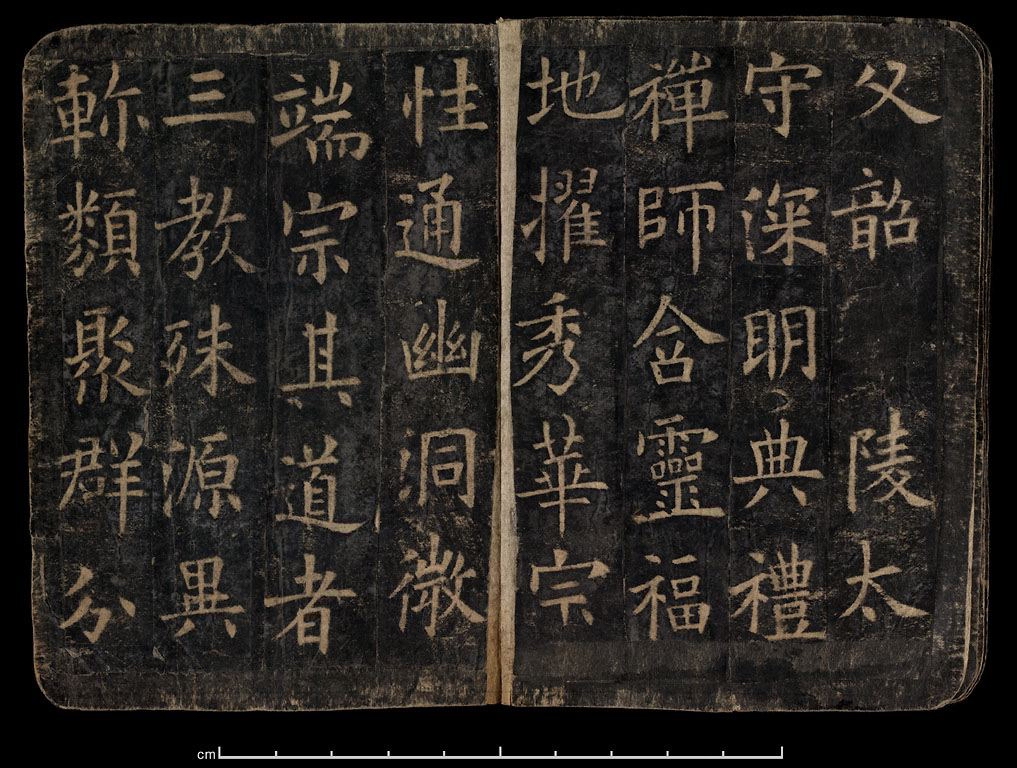 父韶陵太
守深眀典禮
禪師含靈福
地擢秀華宗
性通幽洞微
端宗其道者
三教殊源異
軫類聚群分
cm